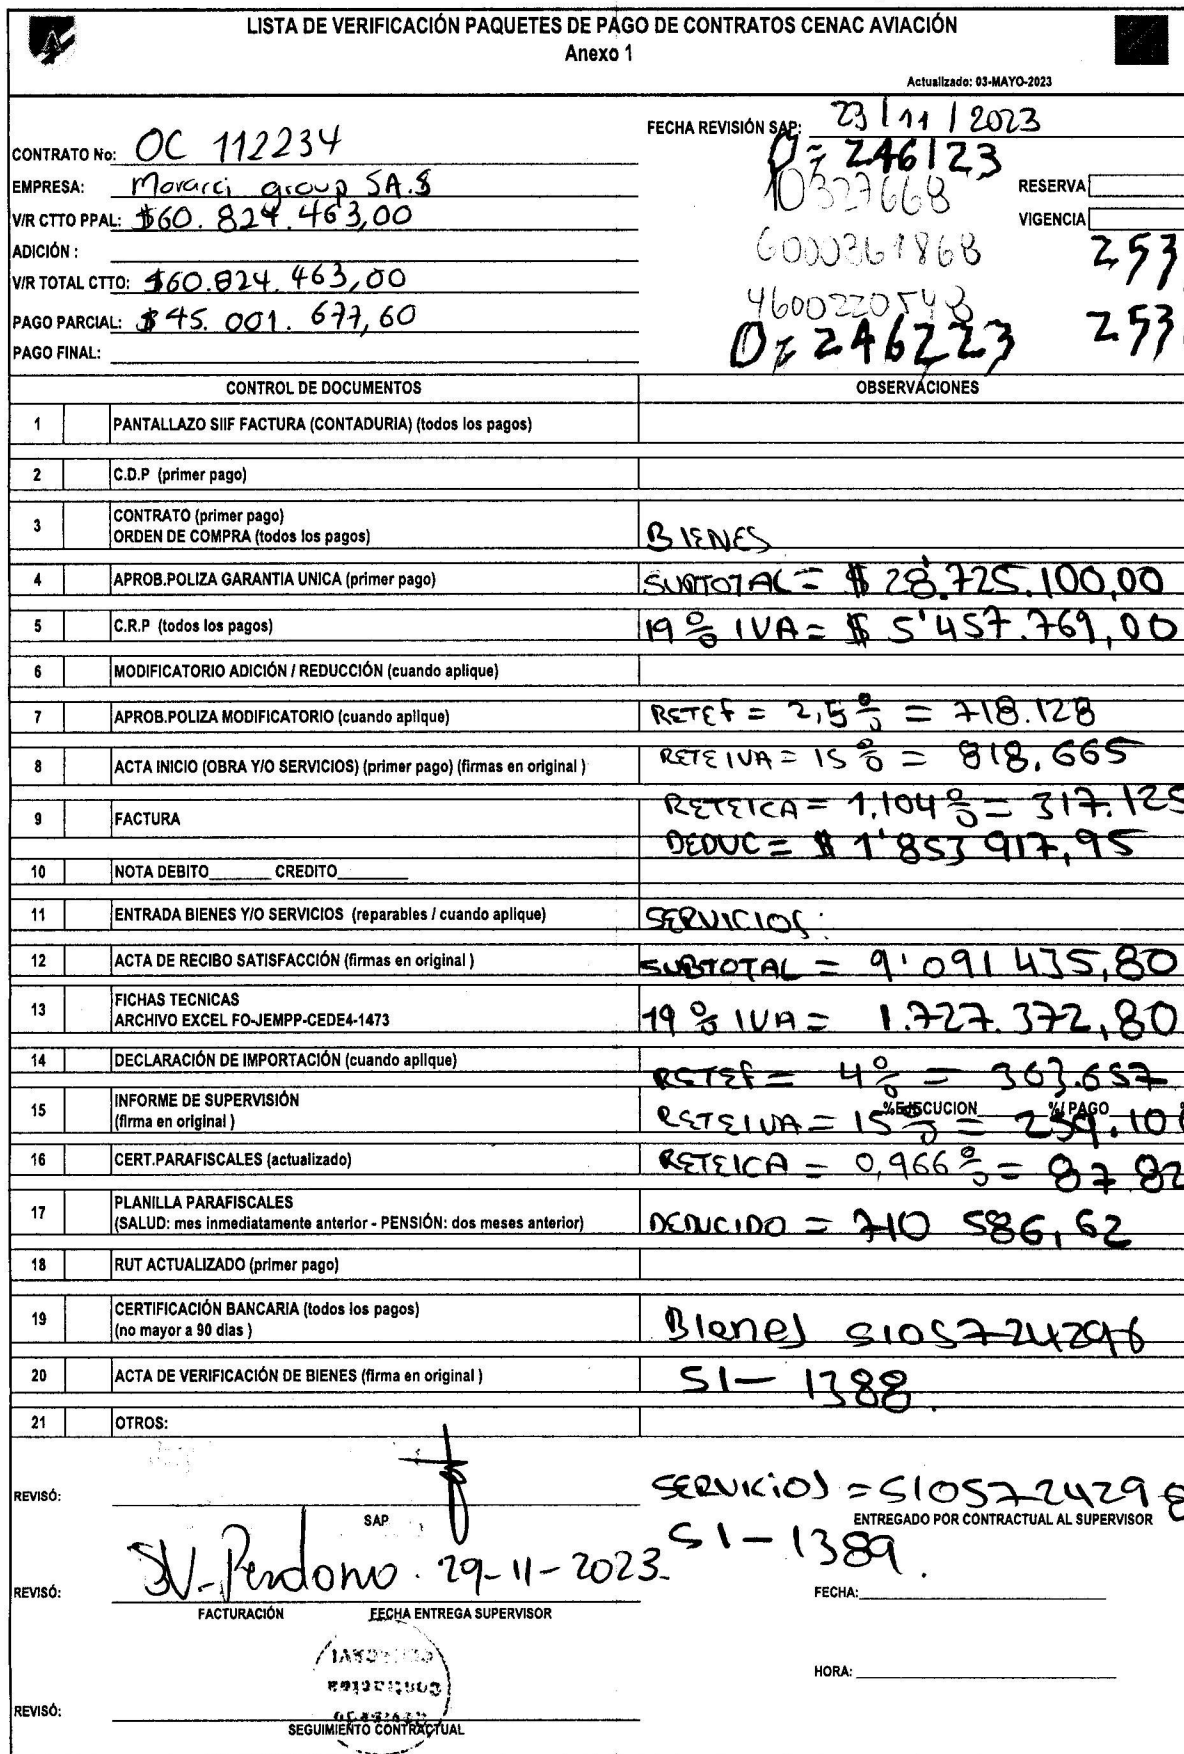 LISTA DE VERIFICACIÓN PAQUETES DE PAGO DE CONTRATOS CENAC AVIACIÓN
Anexo 1
Actualizado: 03-MAYO-2023
FECHA REVISIÓN SAP: 23/11/2023
CONTRATO No: OC 112234
246123
10327668
EMPRESA: Moraɾci group SA.S
RESERVA
V/R CTTO PPAL: $60.824.463,00
VIGENCIA
6000361868
ADICIÓN :
253
V/R TOTAL CTTO: $60.824.463,00
4600220548
PAGO PARCIAL: $45.001.677,60
246223 253
PAGO FINAL:
CONTROL DE DOCUMENTOS OBSERVACIONES
1 PANTALLAZO SIIF FACTURA (CONTADURIA) (todos los pagos)
2 C.D.P (primer pago)
3 CONTRATO (primer pago)
ORDEN DE COMPRA (todos los pagos) BIENES
4 APROB.POLIZA GARANTIA UNICA (primer pago) SUBTOTAL = $ 28'725.100,00
5 C.R.P (todos los pagos) 19% IVA = $ 5'457.769,00
6 MODIFICATORIO ADICIÓN / REDUCCIÓN (cuando aplique)
7 APROB.POLIZA MODIFICATORIO (cuando aplique) RETEF = 2,5% = 718.128
8 ACTA INICIO (OBRA Y/O SERVICIOS) (primer pago) (firmas en original ) RETEIVA = 15% = 818.665
9 FACTURA RETEICA = 1,104% = 317.125
DEDUC = $ 1'853 917,95
10 NOTA DEBITO_______ CREDITO________
11 ENTRADA BIENES Y/O SERVICIOS (reparables / cuando aplique) SERVICIOS:
12 ACTA DE RECIBO SATISFACCIÓN (firmas en original ) SUBTOTAL = 9'091 435,80
13 FICHAS TECNICAS
ARCHIVO EXCEL FO-JEMPP-CEDE4-1473 19% IVA = 1.727.372,80
14 DECLARACIÓN DE IMPORTACIÓN (cuando aplique) RETEF = 4% = 363.657
15 INFORME DE SUPERVISIÓN
(firma en original ) %EJECUCION %/PAGO
RETEIVA = 15% = 259.10
16 CERT.PARAFISCALES (actualizado) RETEICA = 0,966% = 87 82
17 PLANILLA PARAFISCALES
(SALUD: mes inmediatamente anterior - PENSIÓN: dos meses anterior) DEDUCIDO = 710 586,62
18 RUT ACTUALIZADO (primer pago)
19 CERTIFICACIÓN BANCARIA (todos los pagos)
(no mayor a 90 dias ) Bienes 5105724296
20 ACTA DE VERIFICACIÓN DE BIENES (firma en original ) SI- 1388.
21 OTROS:
REVISÓ: SERVICIOS = 5105724298
SAP ENTREGADO POR CONTRACTUAL AL SUPERVISOR
SI-1389.
REVISÓ: SV-Perdomo. 29-11-2023. FECHA:
FACTURACIÓN FECHA ENTREGA SUPERVISOR
HORA:
REVISÓ:
SEGUIMIENTO CONTRACTUAL